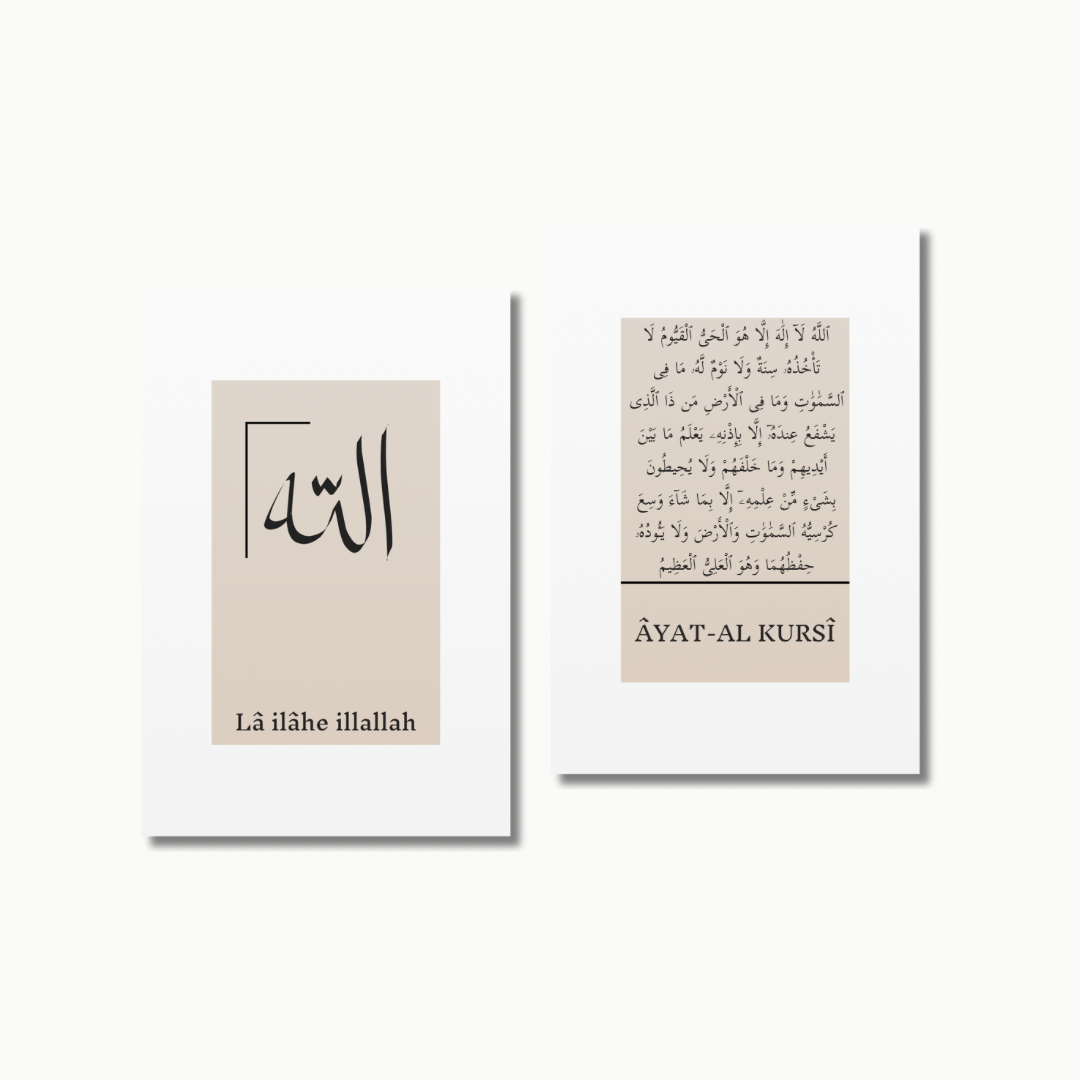 الله
Lâ ilâhe illallah
ٱللَّهُ لَآ إِلَٰهَ إِلَّا هُوَ ٱلْحَىُّ ٱلْقَيُّومُ لَا
تَأْخُذُهُۥ سِنَةٌ وَلَا نَوْمٌ لَّهُۥ مَا فِى
ٱلسَّمَٰوَٰتِ وَمَا فِى ٱلْأَرْضِ مَن ذَا ٱلَّذِى
يَشْفَعُ عِندَهُۥٓ إِلَّا بِإِذْنِهِۦ يَعْلَمُ مَا بَيْنَ
أَيْدِيهِمْ وَمَا خَلْفَهُمْ وَلَا يُحِيطُونَ
بِشَىْءٍ مِّنْ عِلْمِهِۦٓ إِلَّا بِمَا شَآءَ وَسِعَ
كُرْسِيُّهُ ٱلسَّمَٰوَٰتِ وَٱلْأَرْضَ وَلَا يَـُٔودُهُۥ
حِفْظُهُمَا وَهُوَ ٱلْعَلِىُّ ٱلْعَظِيمُ
ÂYAT-AL KURSÎ